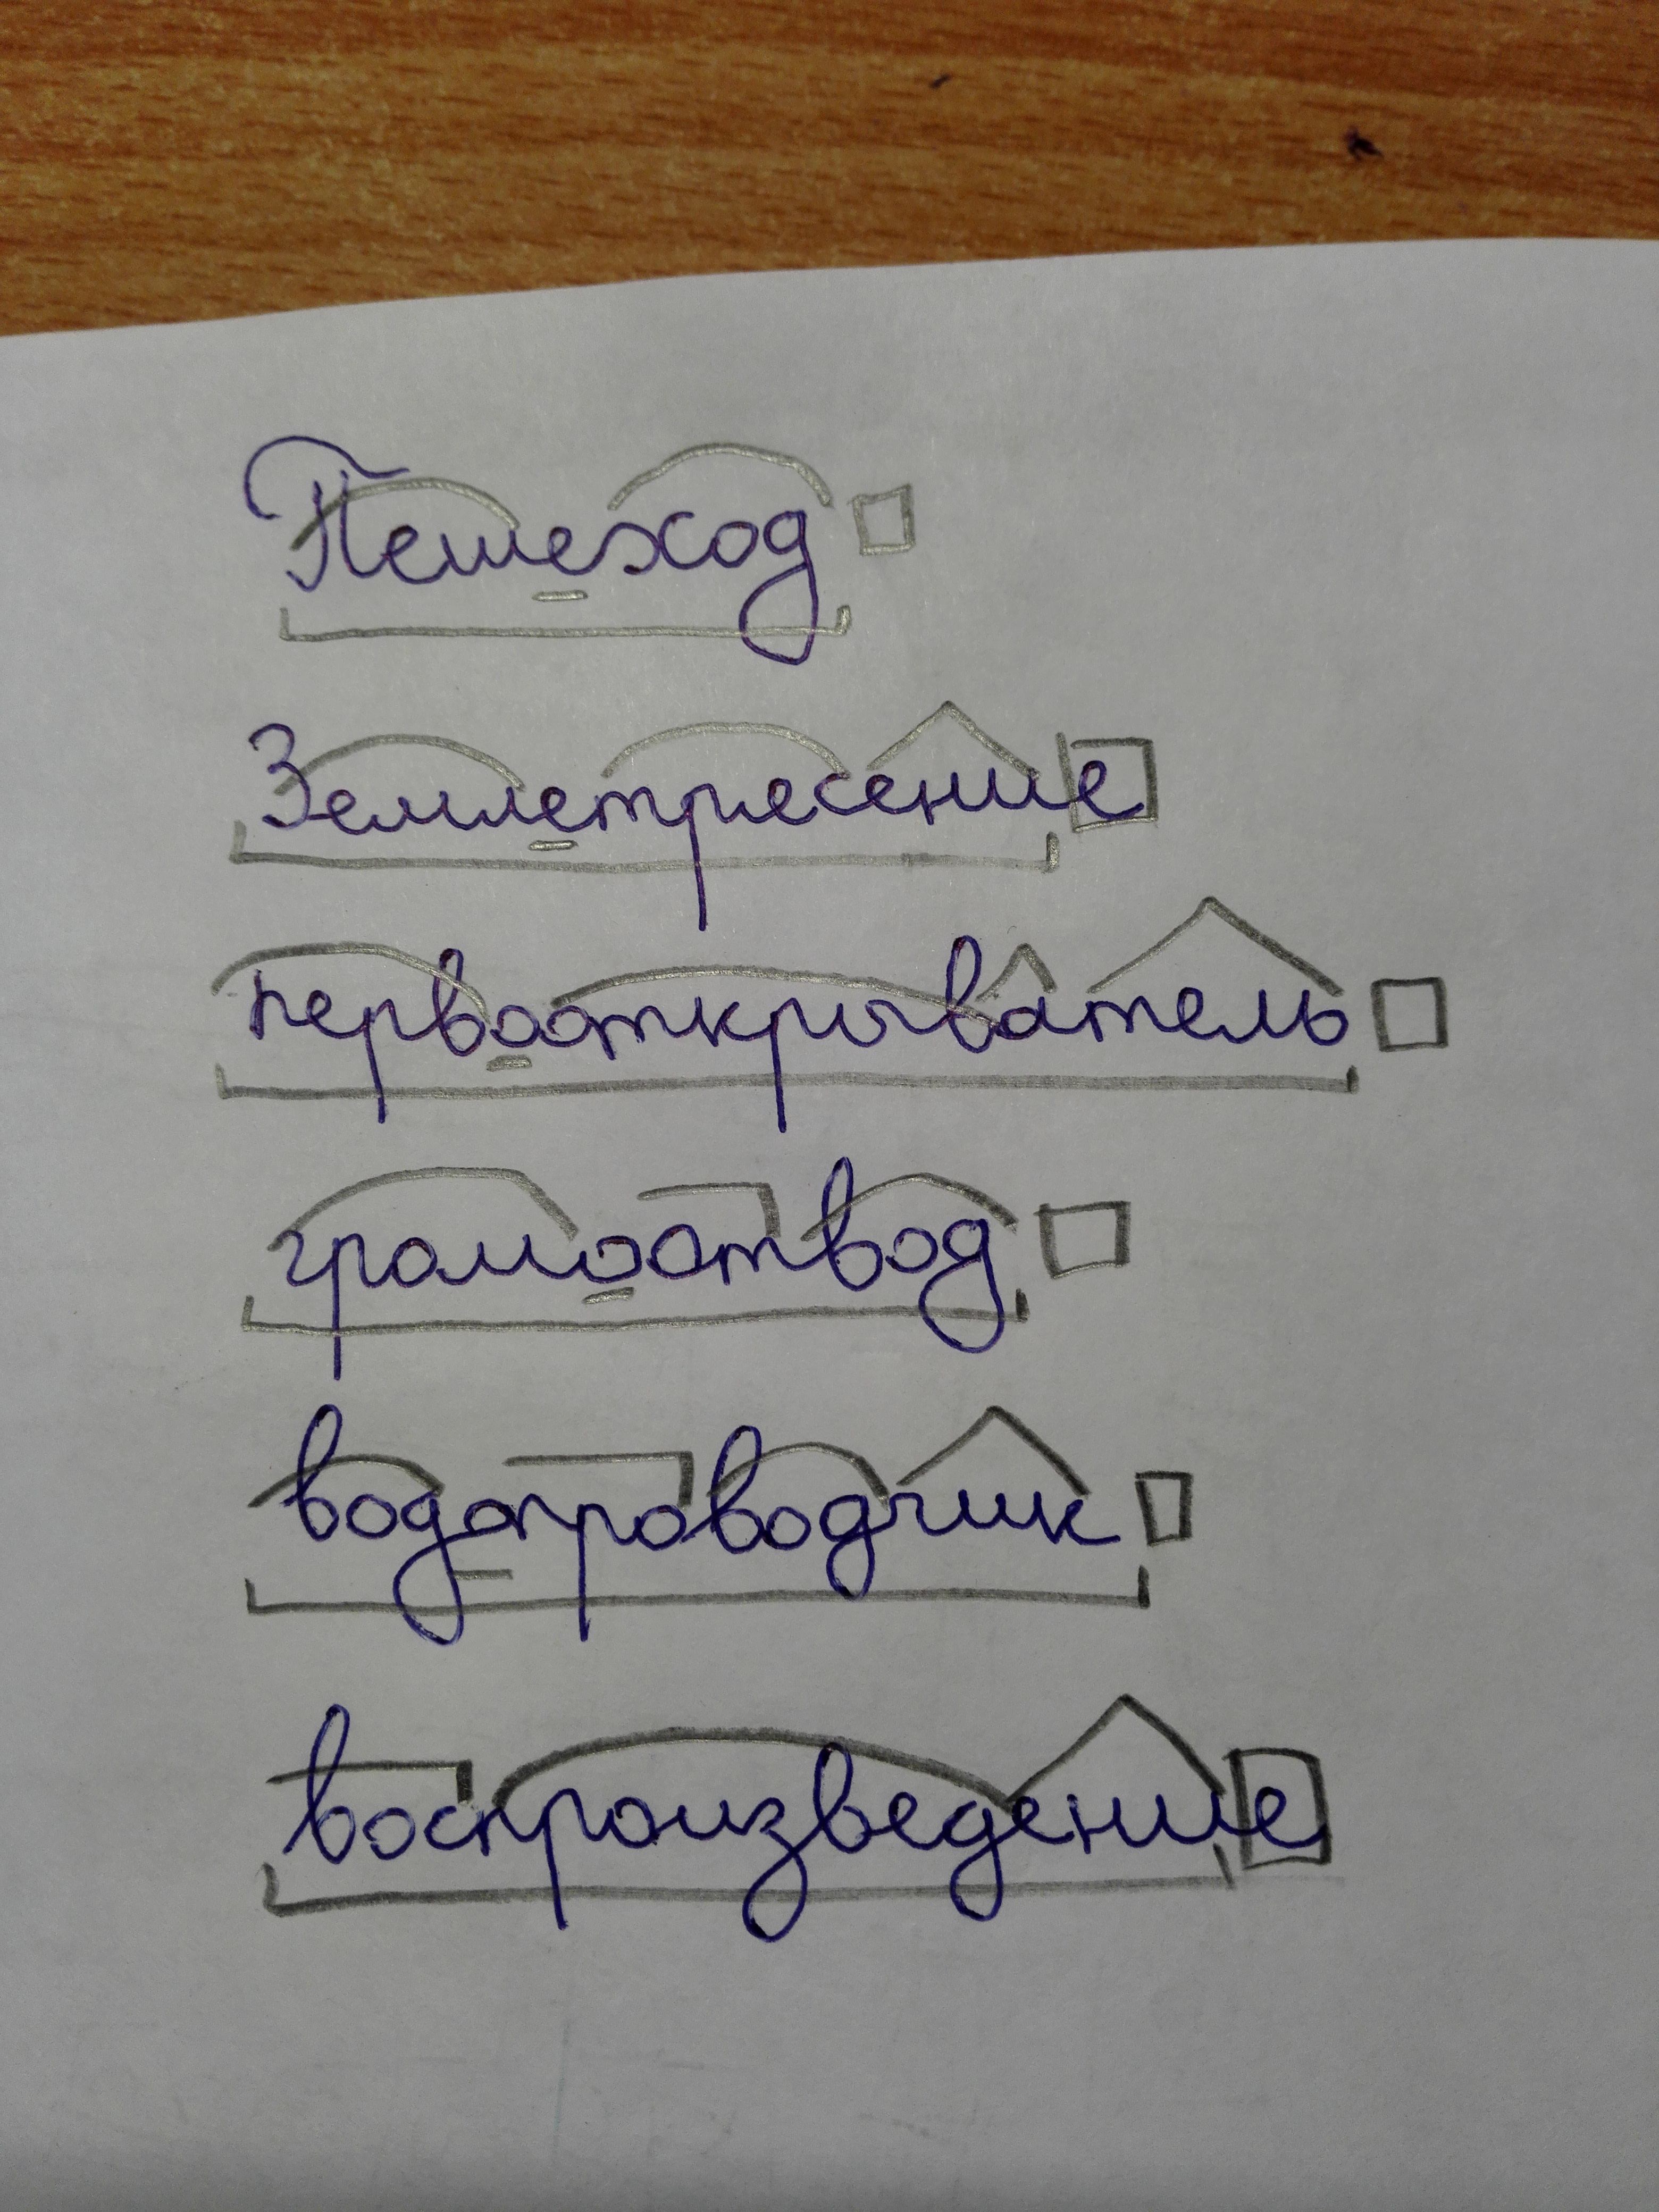 Пешеход
Землетресение
первооткрыватель
громоотвод
водопроводчик
воспроизведение